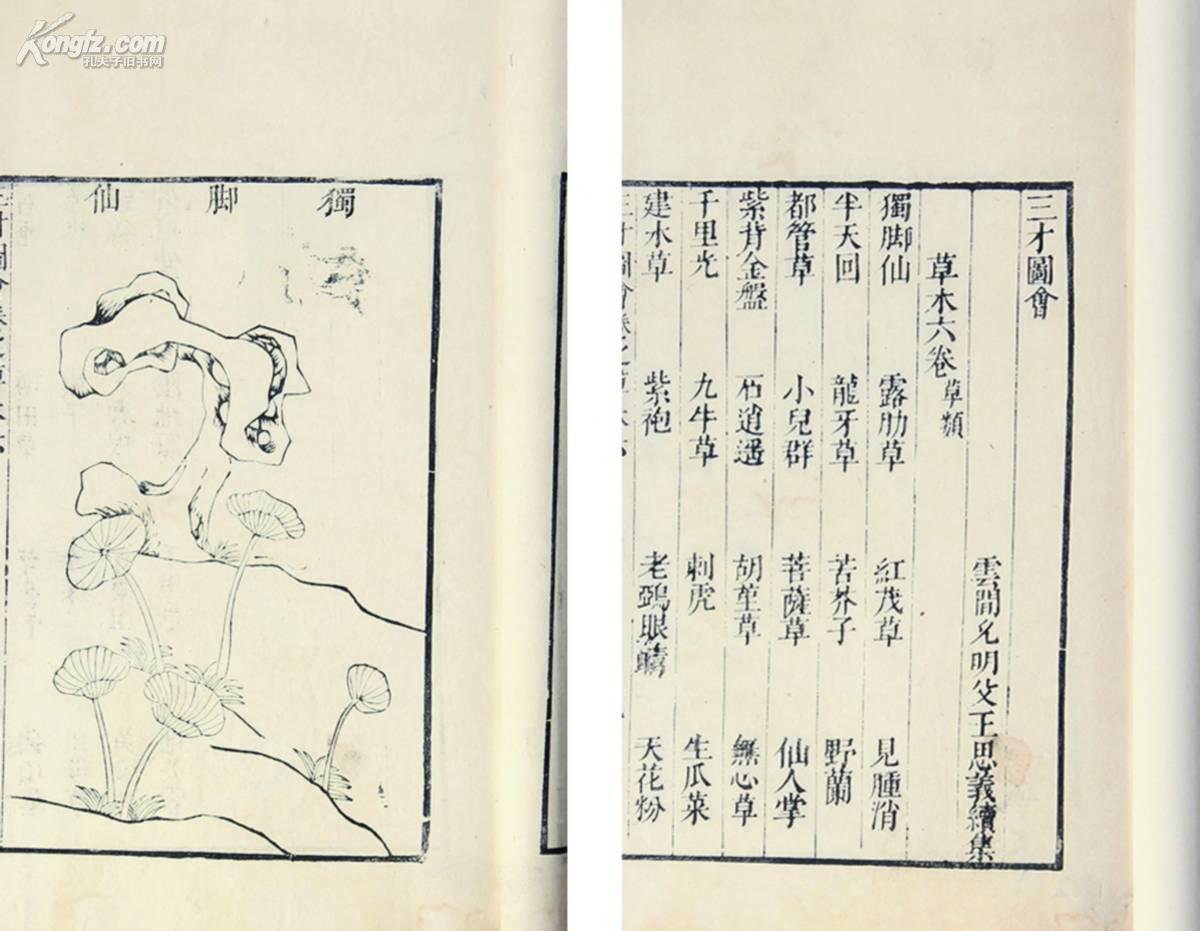 Kongfz.com
孔夫子旧书网
三才圖會
雲間允明父王思義續集
草木六卷 草類
獨脚仙 露肋草 紅茂草 見腫消
半天回 龍牙草 苦芥子 野蘭
都管草 小兒群 菩薩草 仙人掌
紫背金盤 石逍遥 胡堇草 無心草
千里光 九牛草 刺虎 生瓜菜
建水草 紫袍 老鴉眼睛 天花粉
獨脚仙